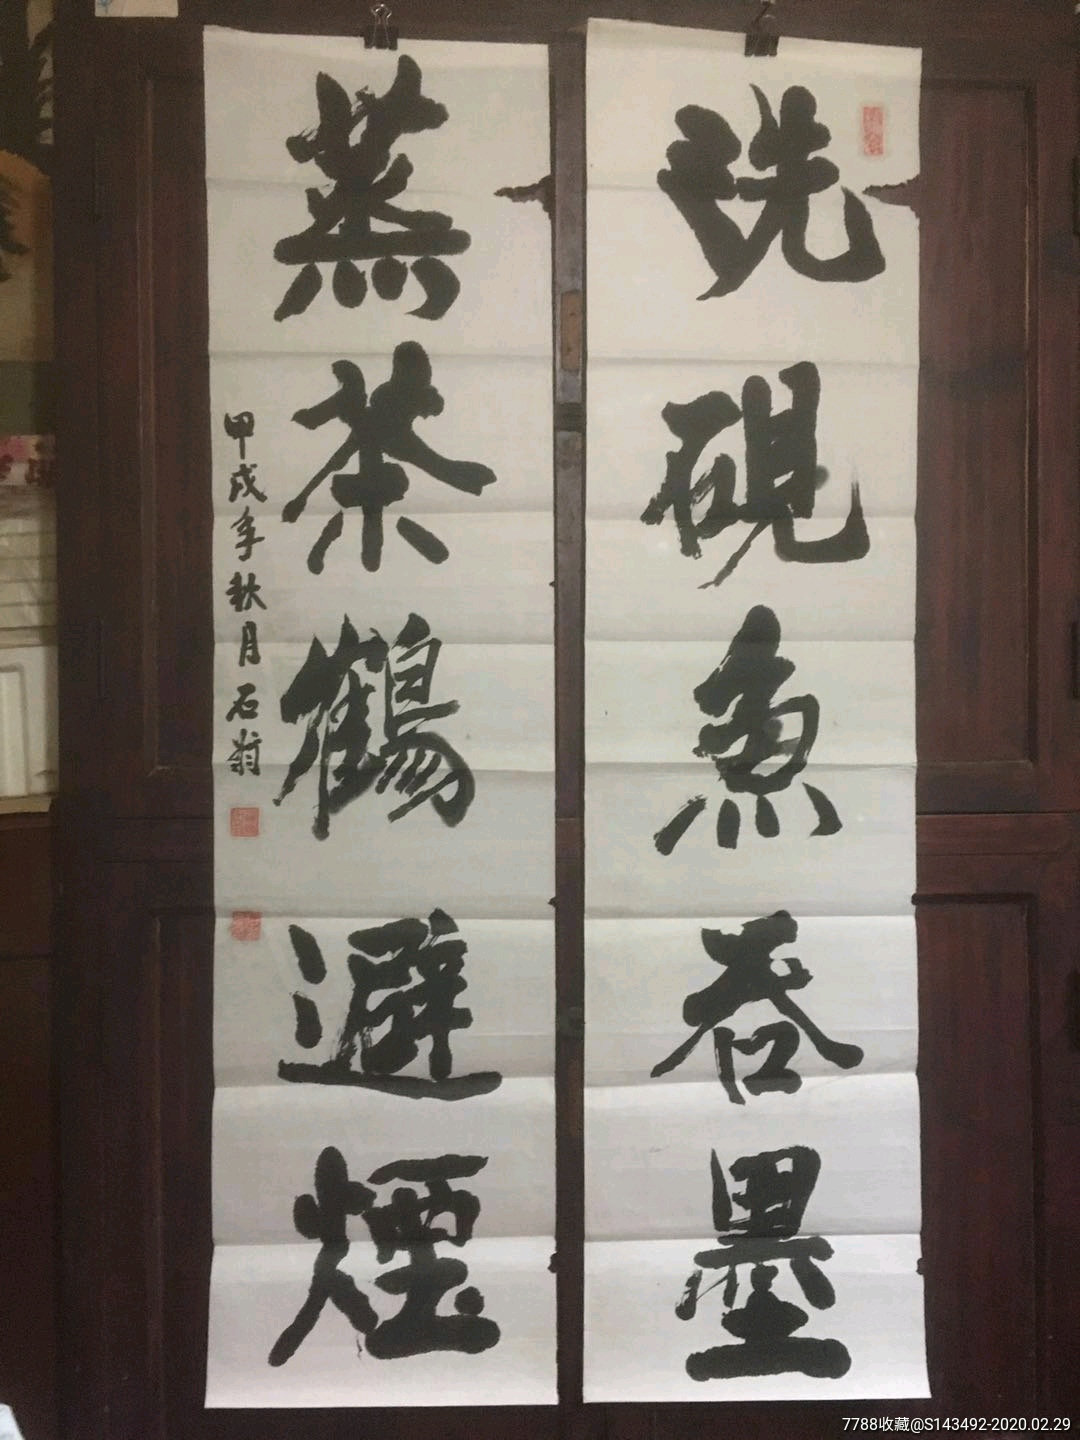 洗砚魚吞墨
蒸茶鶴避煙
甲戌年秋月石翁
7788收藏@S143492-2020.02.29